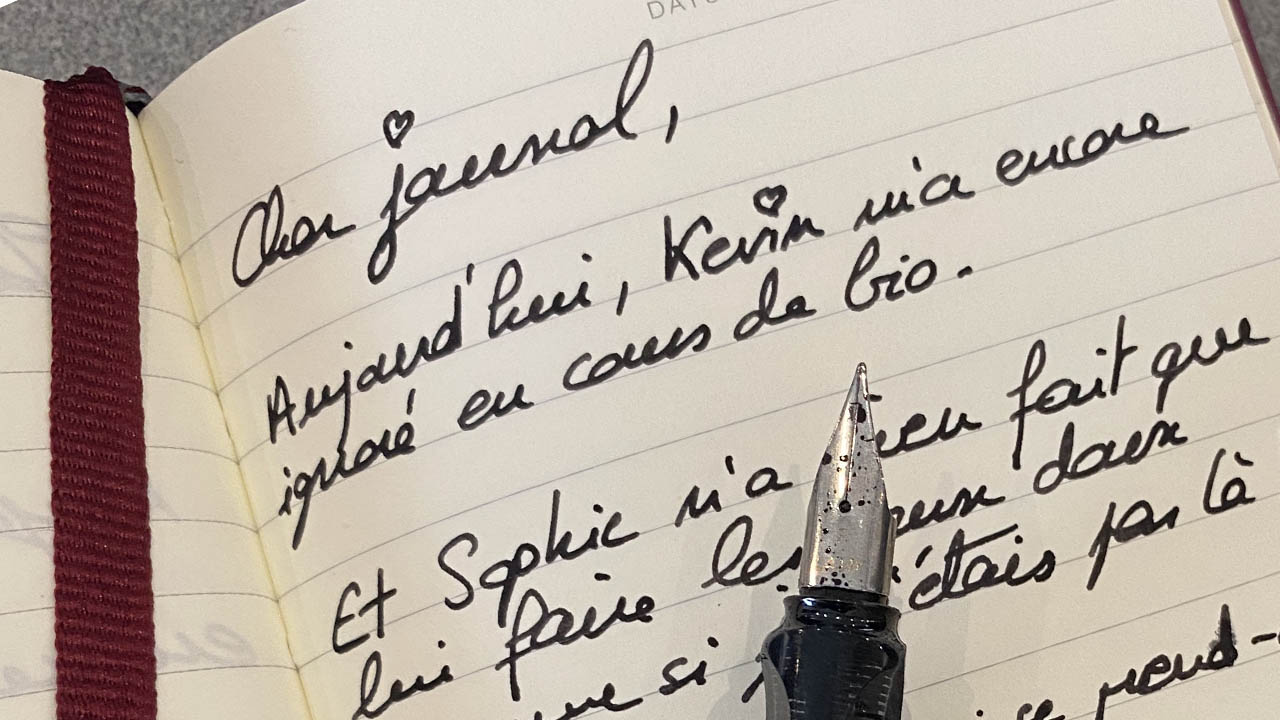 DAT
Cher journal,
Aujourd'hui, Kevin m'a encore
ignoré en cours de bio.
Et Sophie n'a fait que
lui faire les doux
si étais pas là
se rend-